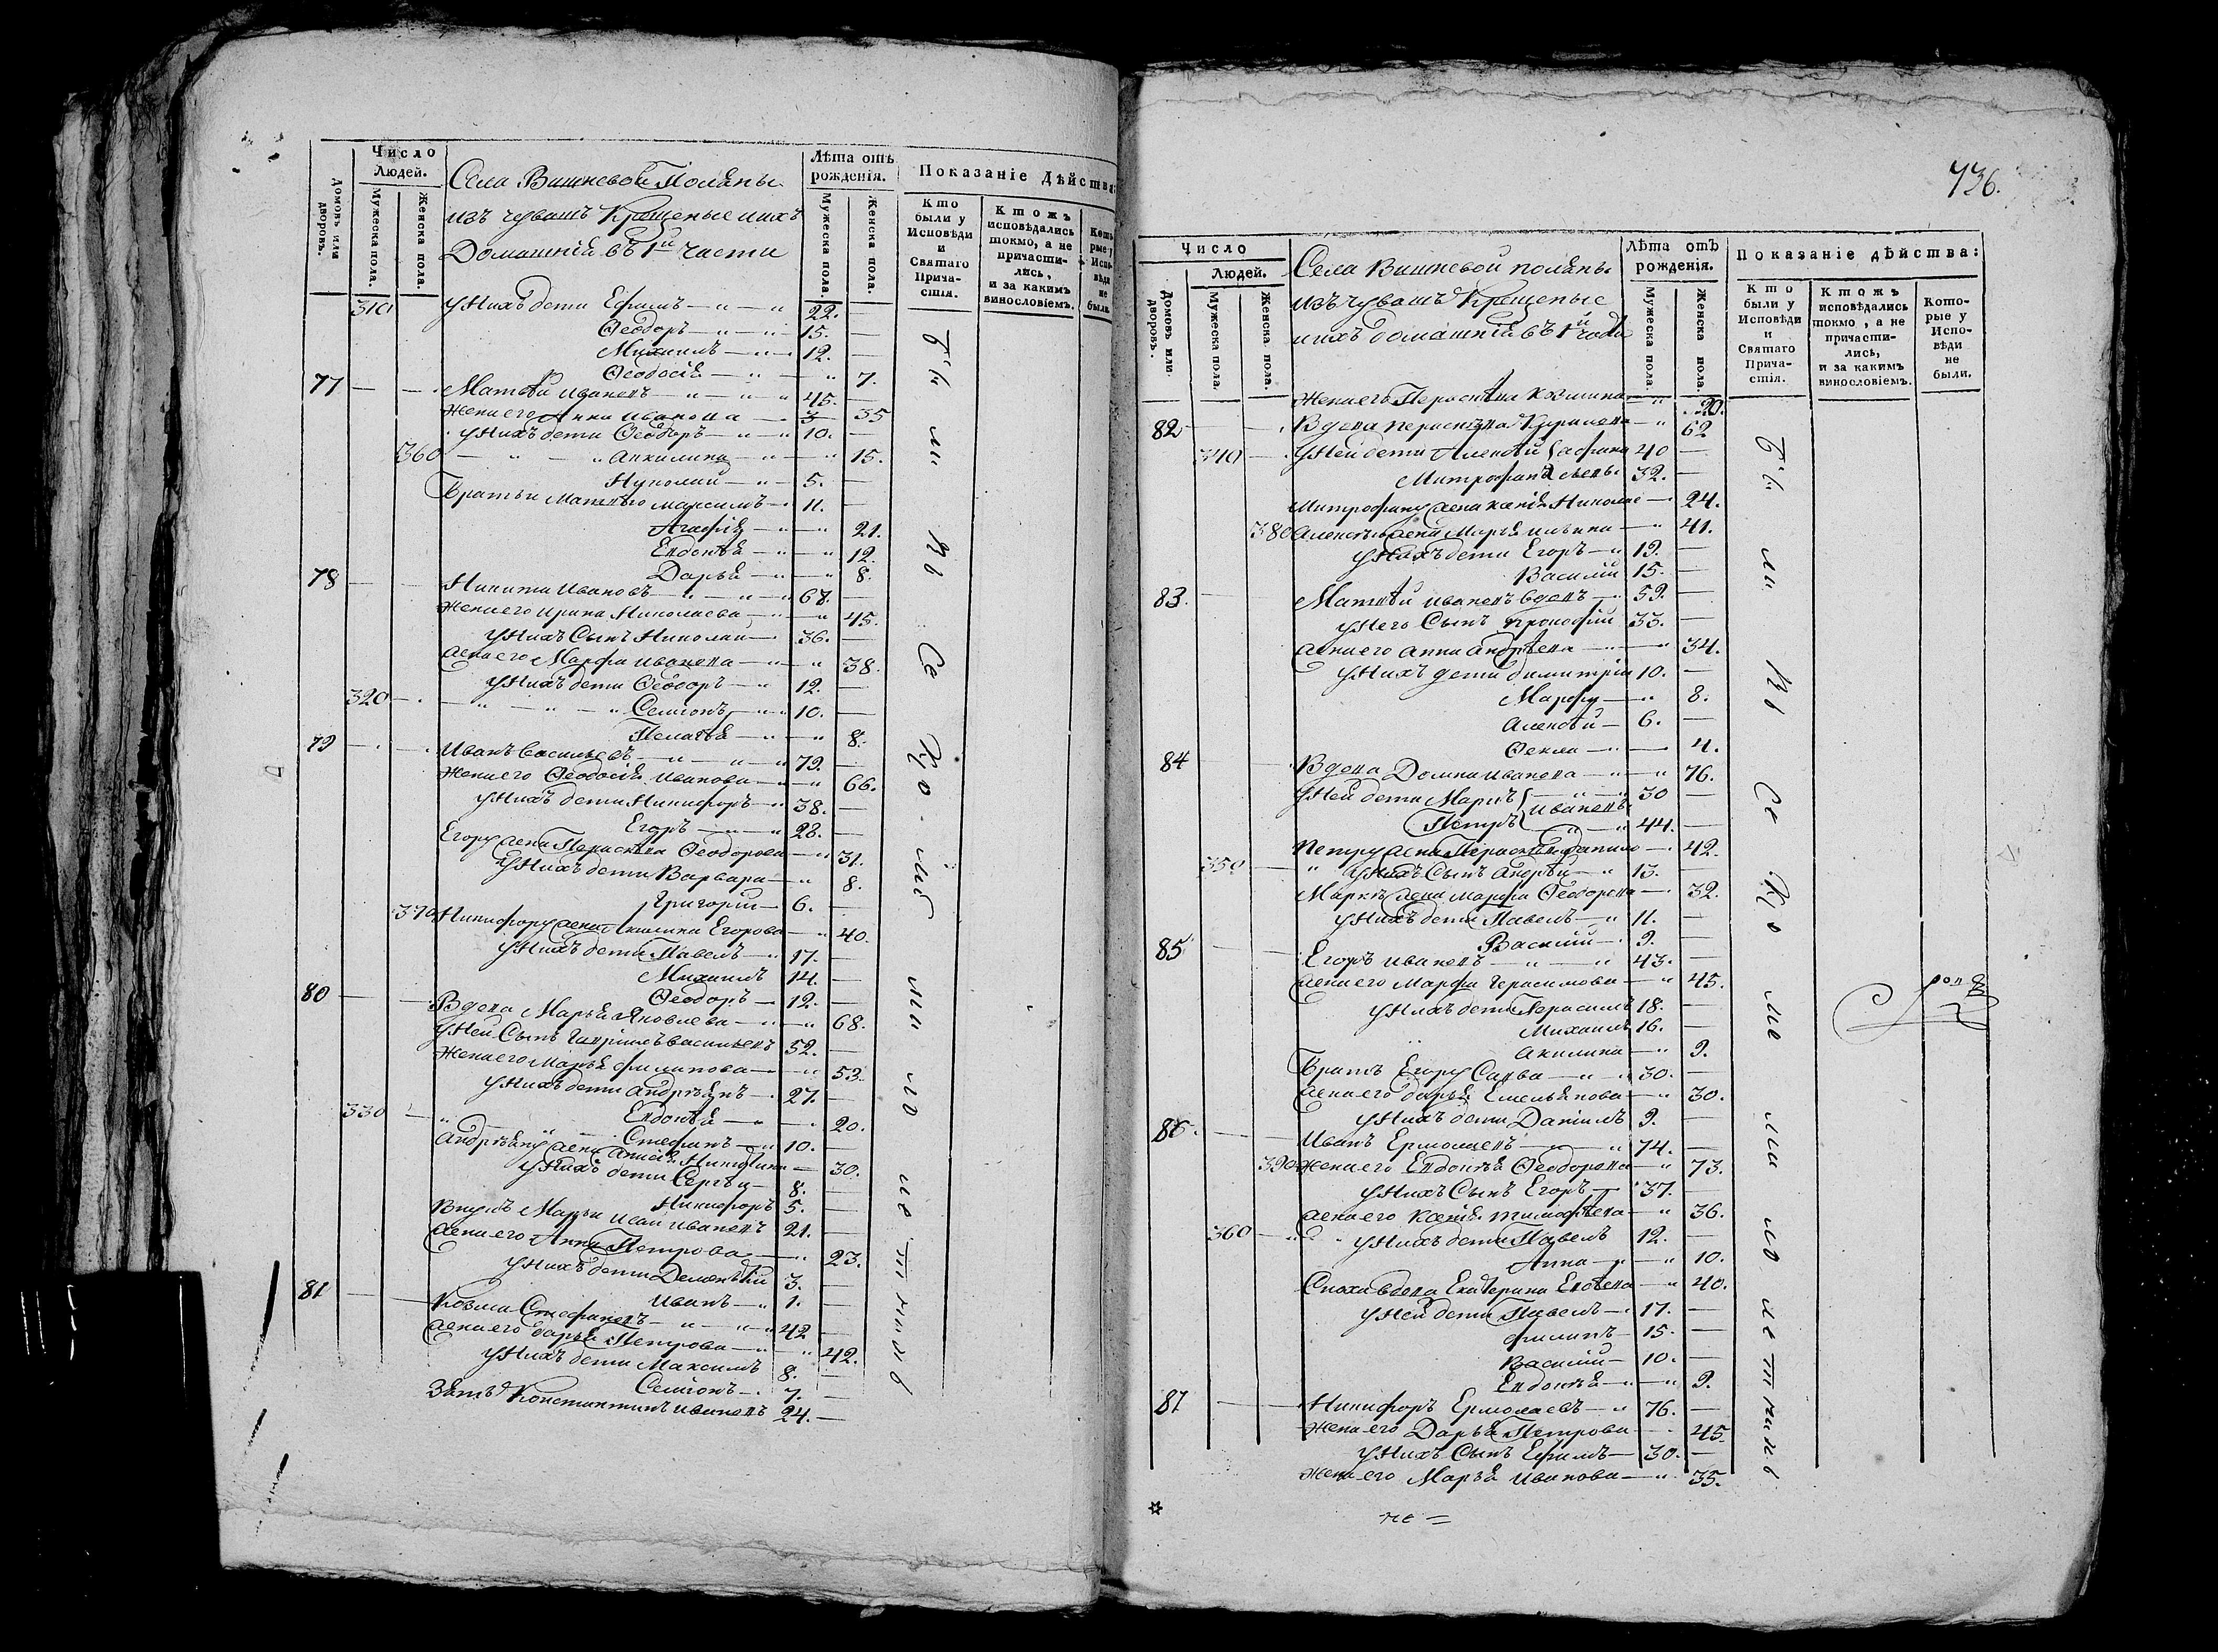 Число
Людей.
Домовъ или дворовъ.
Мужеска пола.
Женска пола.
Села Вишневой Поляны
изъ чувашъ Крещеные ихъ
Домашній въ 1й части
Лѣта отъ
рожденія.
Мужеска пола.
Женска пола.
Показаніе Дѣйства:
Кто были у Исповѣди и Святаго Причастія.
Ктожъ исповѣдались токмо, а не причастились, и за какимъ винословіемъ.
Которые у Исповѣди не были.
310 У Нихъ дети Ефимъ 22.
Ѳеодоръ 15.
Михаилъ 12.
Ѳеодосія 7.
77 Матвѣй Ивановъ 45.
Жена его Анна Иванова 35
У Нихъ дети Ѳеодоръ 10.
360 Акилина 15.
5.
Братьи Максимъ 11.
Агафія 21.
Евдокѣя 12.
Дарья 8.
78 Никита Ивановъ 67.
Жена его Ирина Николаева 45.
У Нихъ Сынъ Николай 36.
Жена его Марфа Иванова 38.
У Нихъ дети Ѳеодоръ 12.
320 Семіонъ 10.
Пелагѣя 8.
79 Иванъ Васильевъ 79.
Жена его Ѳеодосія Иванова 66.
У Нихъ дети Никифоръ 38.
Егоръ 28.
Егору жена Параскѣва Ѳеодорова 31.
У Нихъ дети Варвара 8.
Григорій 6.
370 Никифору жена Акилина Егорова 40.
У Нихъ дети Павелъ 17.
Михаилъ 14.
Ѳеодоръ 12.
80 Вдова Марья Яковлева 68.
У Ней Сынъ Гаврилъ Васильевъ 52.
Жена его Марья Филипова 53.
У Нихъ дети Андрѣянъ 27.
330 Евдокѣя 20.
Стефанъ 10.
Андрѣяну жена Анисія Никитина 30.
У Нихъ дети Сергѣй 8.
Никифоръ 5.
Внукъ Марьи Исай Ивановъ 21.
Жена его Анна Петрова 23.
У Нихъ дети Дементѣй 3.
Иванъ 1.
81 Козма Стефановъ 42
Жена его Дарья Петрова 42.
У Нихъ дети Максимъ 8.
Семіонъ 7.
Зять Константинъ Ивановъ 24.
736.
Число
Людей.
Домовъ или дворовъ.
Мужеска пола.
Женска пола.
Села Вишневой поляны
изъ чувашъ Крещеные
ихъ домашній въ 1й части
Лѣта отъ
рожденія.
Мужеска пола.
Женска пола.
Показаніе дѣйства:
Кто были у Исповѣди и Святаго Причастія.
Ктожъ исповѣдались токмо, а не причастились, и за какимъ винословіемъ.
Которые у Исповѣди не были.
Жена его Параскѣва Козмина 20.
82 Вдова Параскѣва 62
340 У Ней дети Алексѣй 40
Митрофанъ 32.
Митрофану жена Николае 24.
380 Алексѣю жена Марья Ильина 41.
У Нихъ дети Егоръ 19.
Василій 15.
83. Матвѣй Ивановъ вдовъ 59.
У Него Сынъ Прокофій 33.
Жена его Анна Андрѣева 34.
У Нихъ дети Димитрій 10.
Марфа 8.
Алексѣй 6.
Ѳекла 4.
84 Вдова Домна Иванова 76.
У Ней дети Маркъ 30
Ивановы
Петръ 44.
Петру жена Параскѣва Данило 42.
350 У Нихъ Сынъ Андрѣй 13.
Марку жена Марфа Ѳеодорова 32.
У Нихъ дети Павелъ 11.
Василій 9.
85 Егоръ Ивановъ 43.
Жена его Марфа Герасимова 45.
У Нихъ дети Герасимъ 18.
Михаилъ 16.
Акилина 9.
Братъ Егору Савва 30.
Жена его Дарья Емельянова 30.
У Нихъ дети Даніилъ 9.
86. Иванъ Ермолаевъ 74.
390 Жена его Евдокѣя Ѳеодорова 73.
У Нихъ Сынъ Егоръ 37.
Жена его Ксенія Тимофѣева 36.
360 У Нихъ дети Павелъ 12.
Анна 10.
Сноха вдова Екатерина 40.
У Ней дети Павелъ 17.
Филипъ 15.
Василій 10.
Евдокѣя 9.
87 Никифоръ Ермолаевъ 76.
Жена его Дарья Петрова 45.
У Нихъ Сынъ Ефимъ 30.
Жена его Марья Иванова 35.